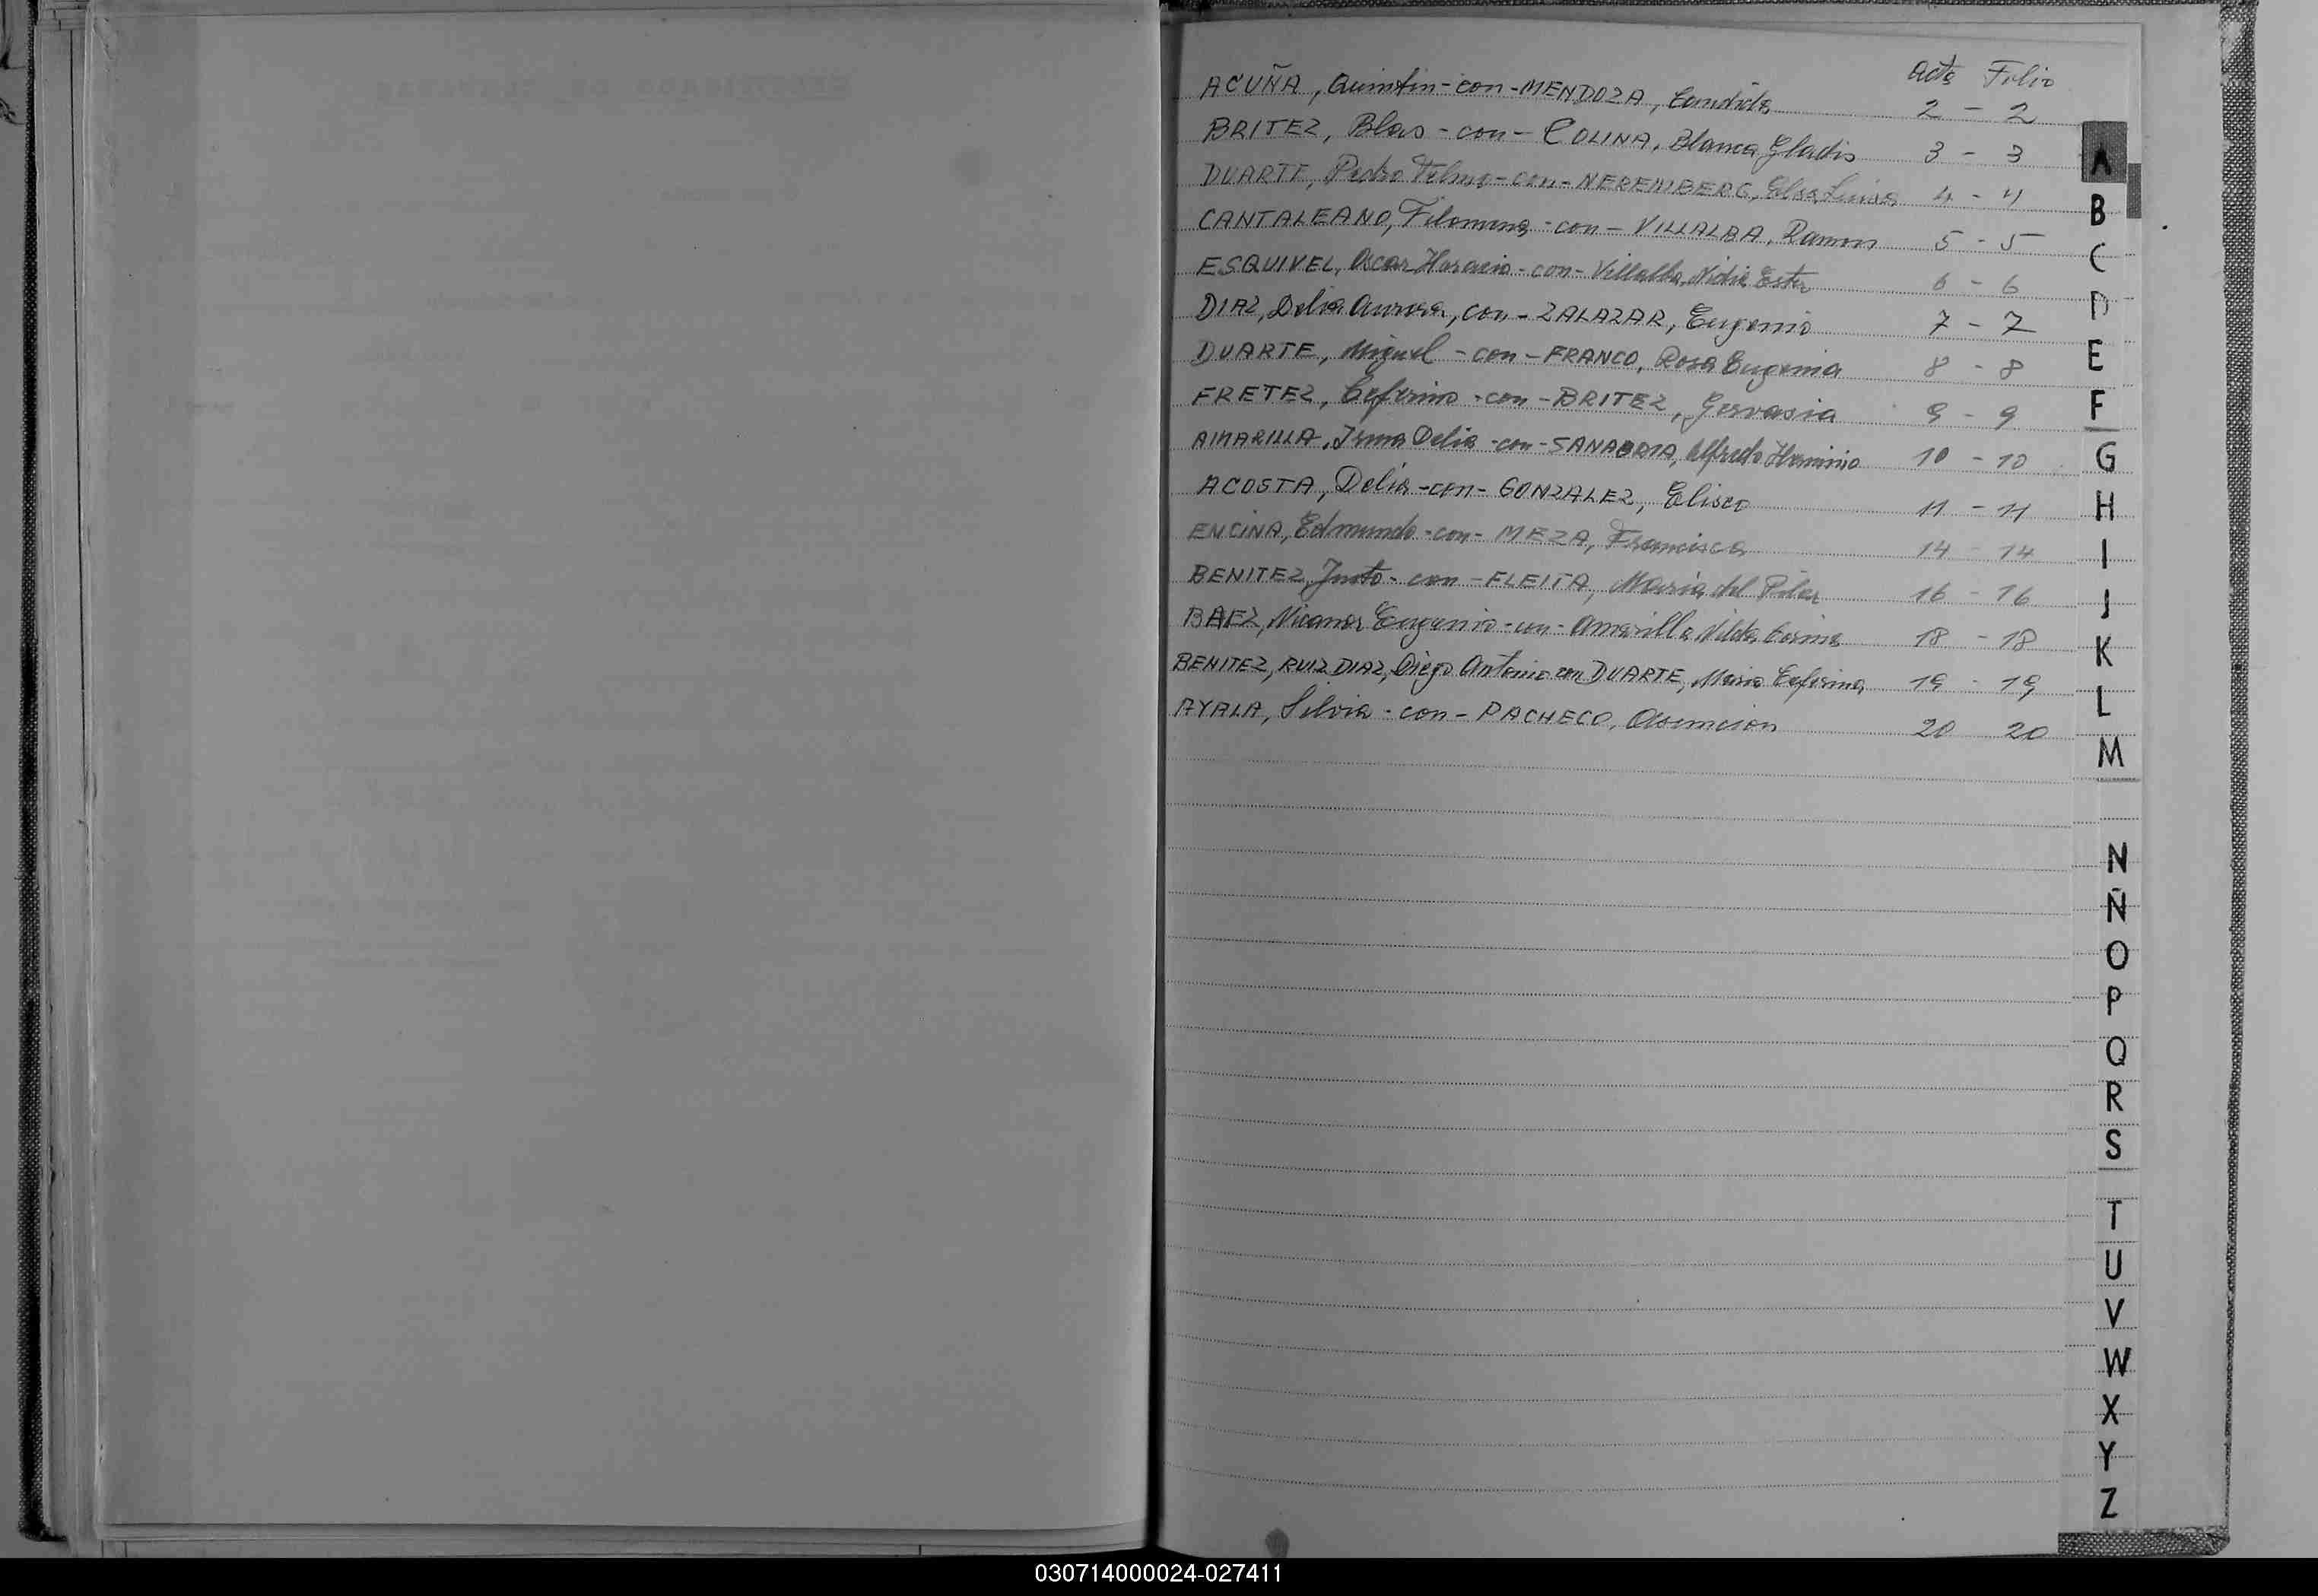 Acta Folio
ACUÑA, Quintin - con - MENDOZA, Candida 2 - 2
BRITEZ, Blas - con - COLINA, Blanca Gladis 3 - 3
DUARTE, Pedro Telmo - con - NEREMBERG, Elsa Luisa 4 - 4
CANTALEANO, Filomena - con - VILLALBA, Ramon 5 - 5
ESQUIVEL, Oscar Horacio - con - Villalba, Nidia Ester 6 - 6
DIAZ, Delia Aurora, con - ZALAZAR, Eugenio 7 - 7
DUARTE, Miguel - con - FRANCO, Rosa Eugenia 8 - 8
FRETEZ, Ceferino - con - BRITEZ, Gervasia 9 - 9
AMARILLA, Irma Delia - con - SANABRIA, Alfredo Herminio 10 - 10
ACOSTA, Delia - con - GONZALEZ, Eliseo 11 - 11
ENCINA, Edmundo - con - MEZA, Francisca 14 - 14
BENITEZ, Justo - con - FLEITA, Maria del Pilar 16 - 16
BAEZ, Nicanor Eugenio - con - Amarilla, Nilda 18 - 18
BENITEZ, RUIZ DIAZ, Diego Antonio con DUARTE, Maria Ceferina 19 - 19
AYALA, Silvia - con - PACHECO, Asuncion 20 20
A
B
C
D
E
F
G
H
I
J
K
L
M
N
Ñ
O
P
Q
R
S
T
U
V
W
X
Y
Z
030714000024-027411